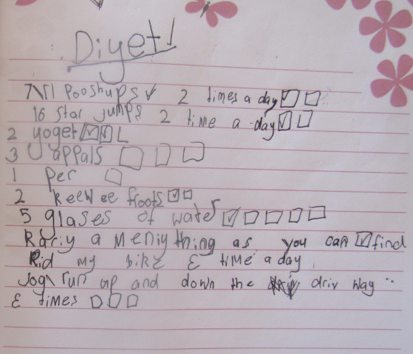 Diyet!
7\11 Pooshups 2 times a day
16 star jumps 2 time a day
2 yoget
3 appals
1 per
2 keewee froots
5 glases of water
Rariy a meniy thing as you can find
Rid my bike & time a day
Jog\run up and down the driv way
& times